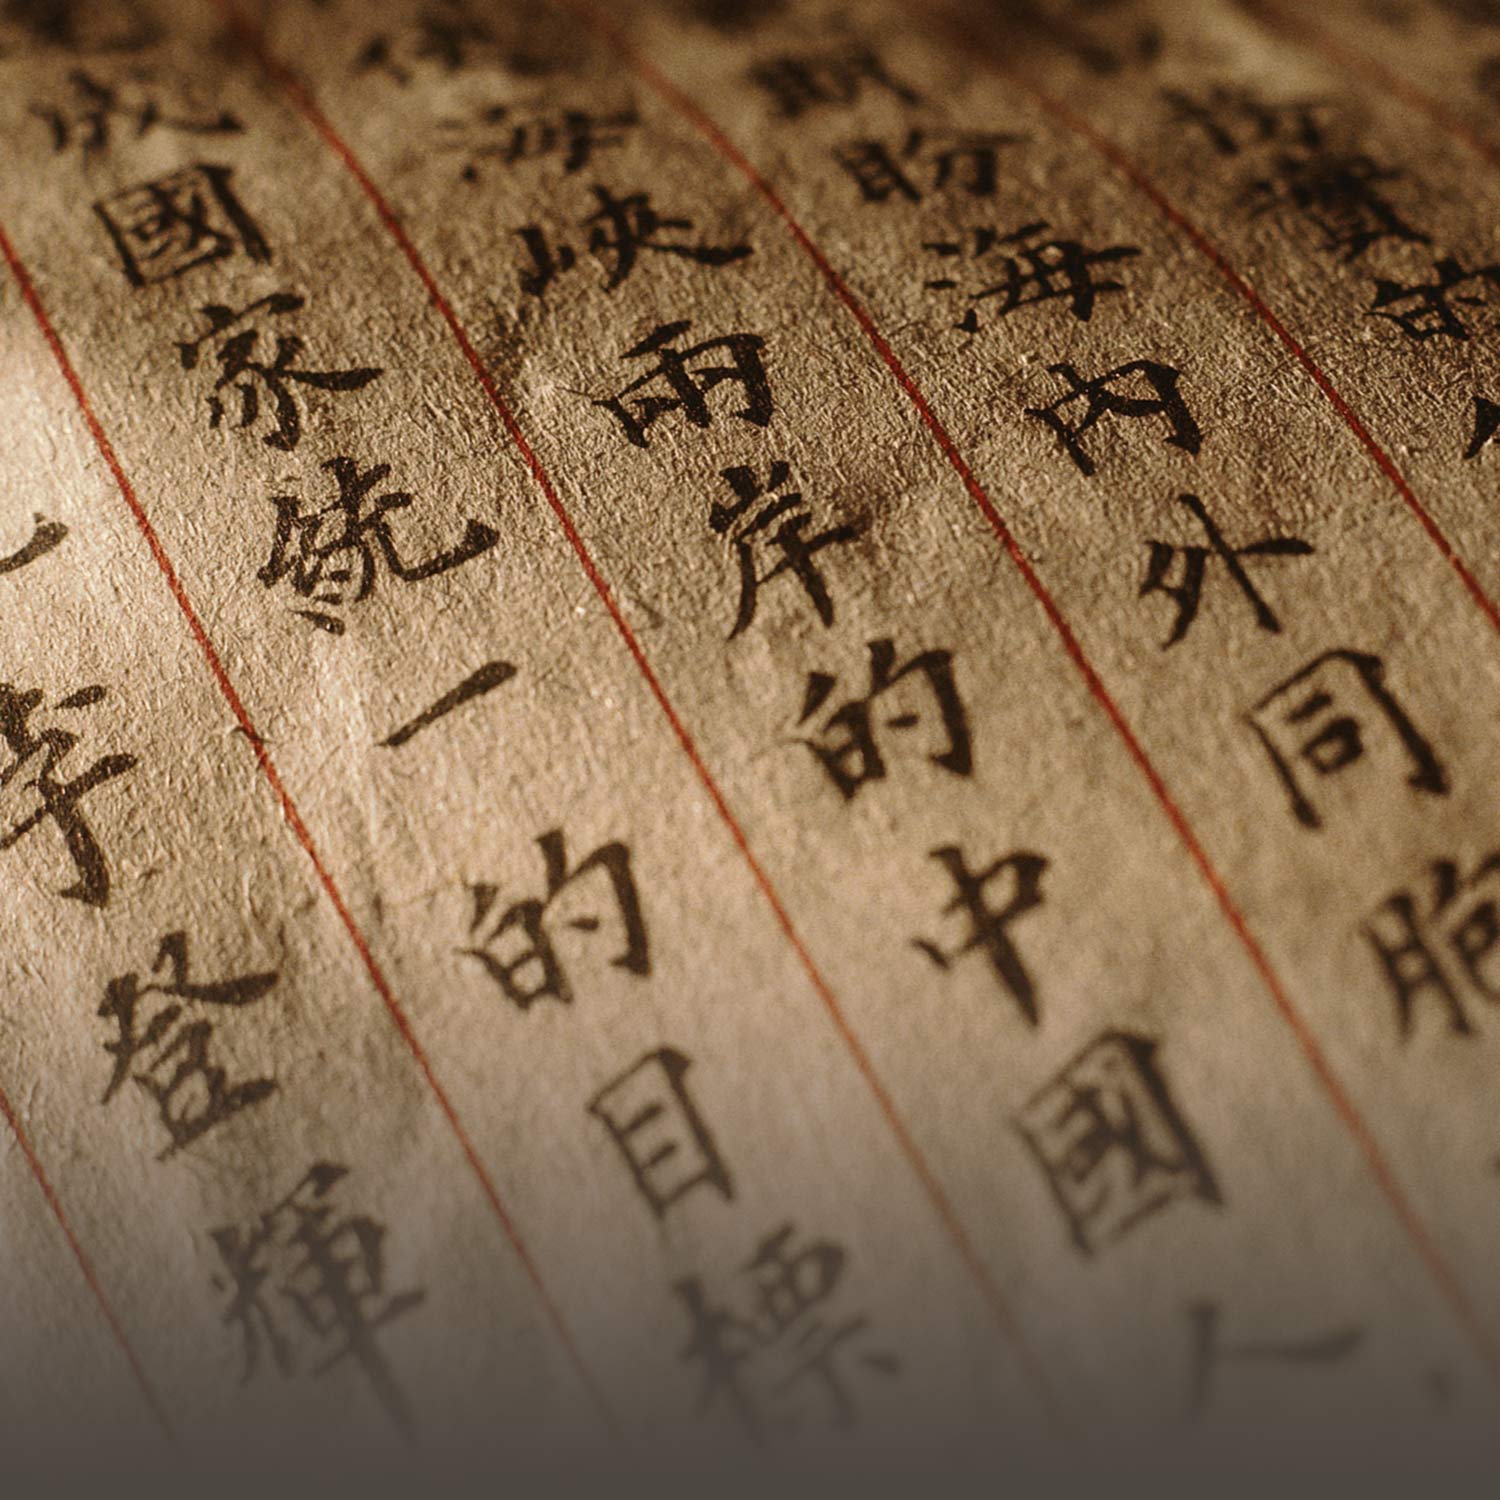 的
盼海內外同胞
海峽兩岸的中國人
成國家統一的目標
李登輝